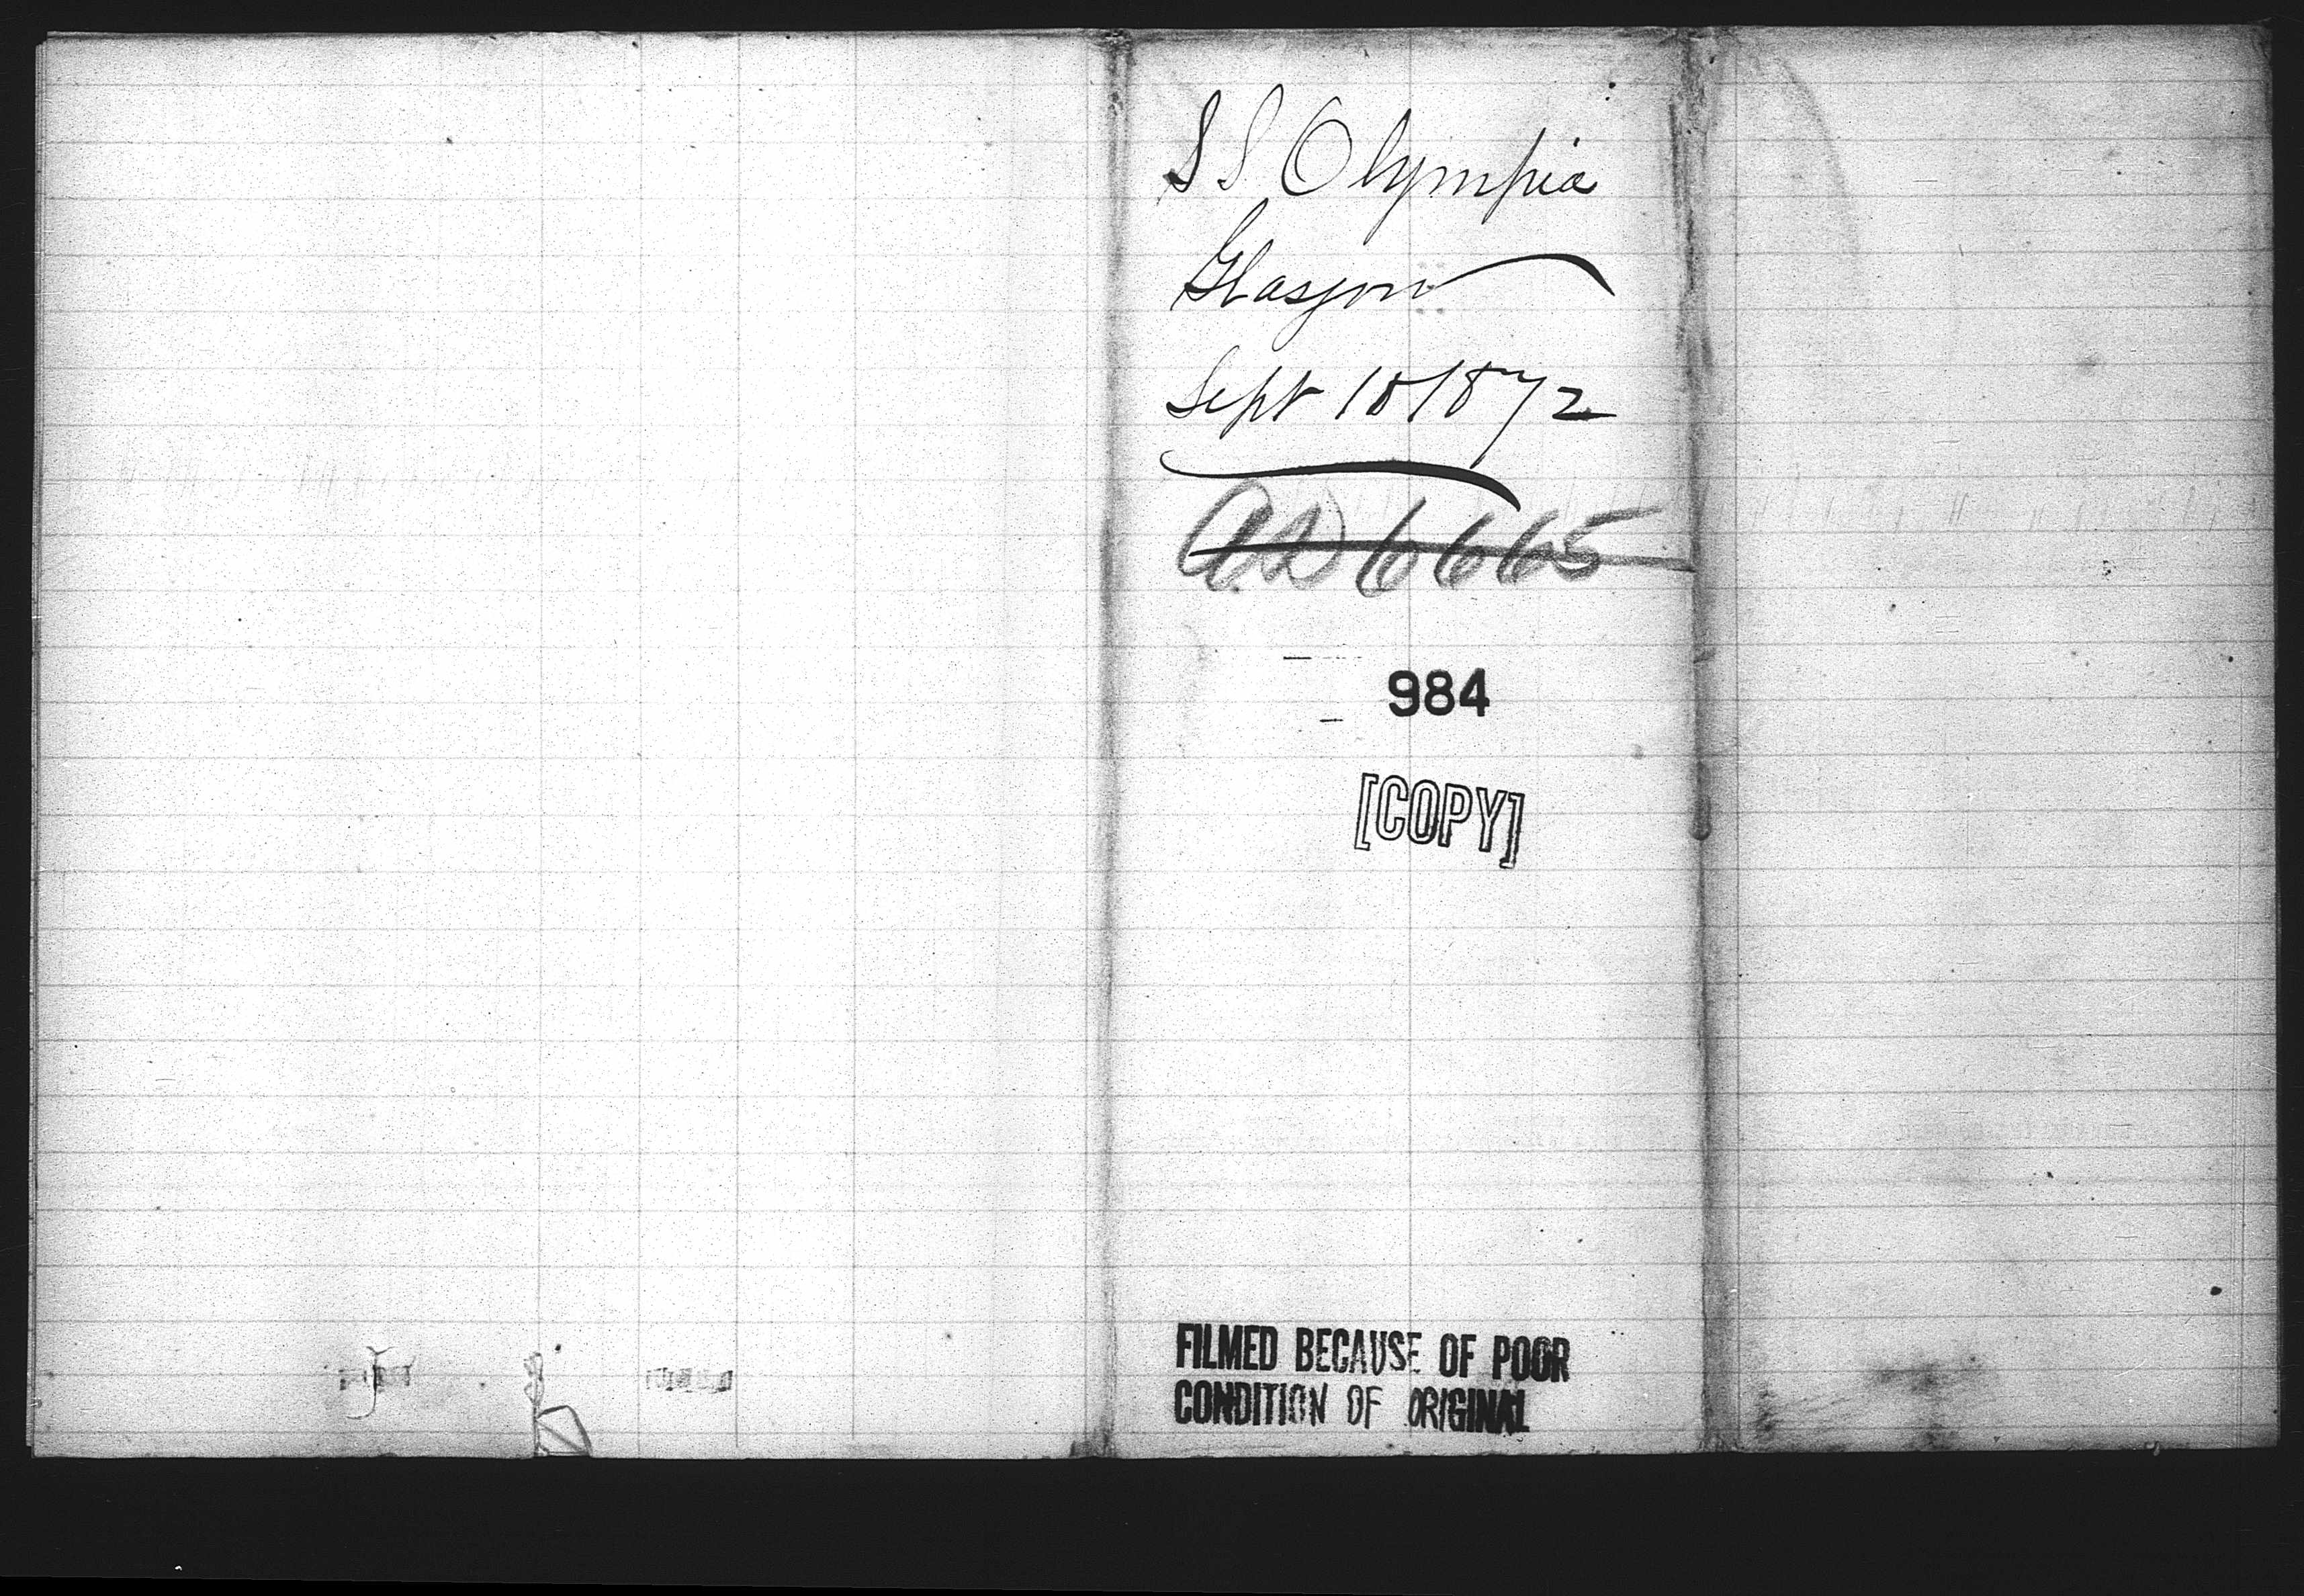 S S Olympia
Glasgow
Sept 18 1872
6665
984
[COPY]
FILMED BECAUSE OF POOR
CONDITION OF ORIGINAL